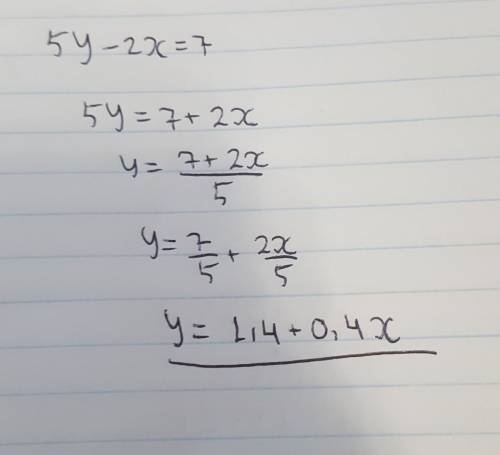 5y - 2x = 7
5y = 7 + 2x
y = (7 + 2x)/5
y = 7/5 + 2x/5
y = 1,4 + 0,4x